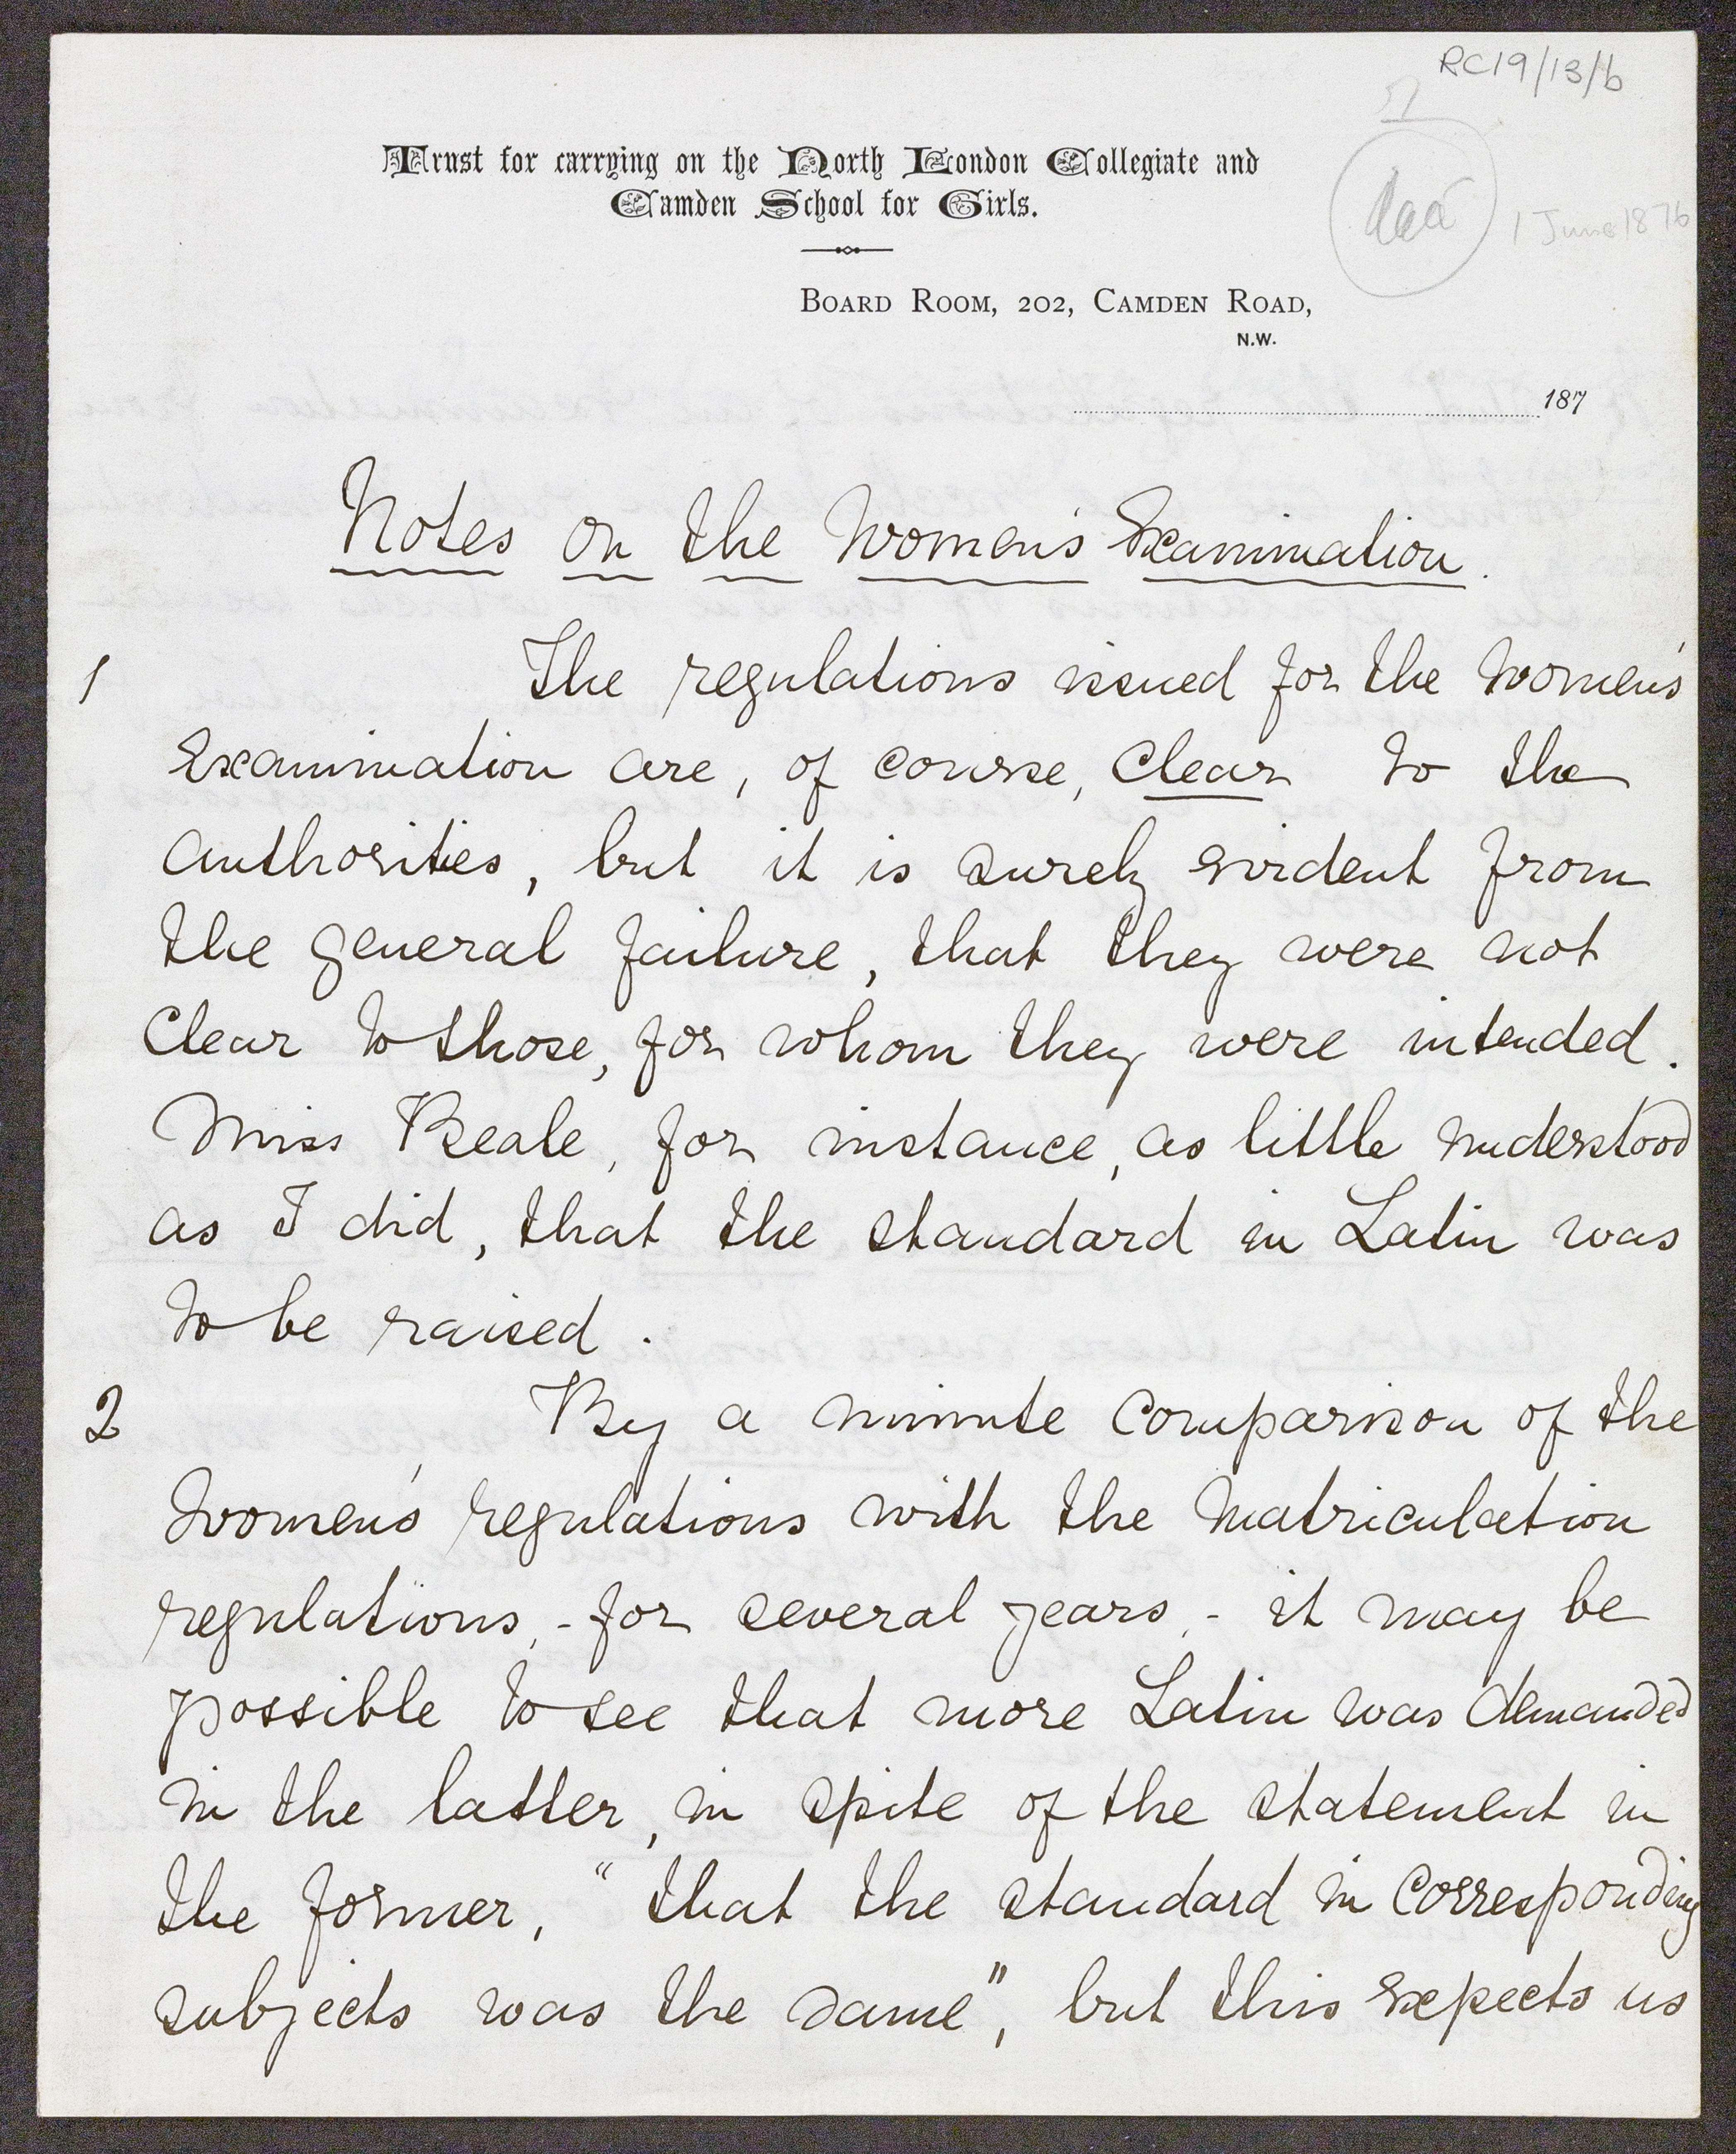 RC19/13/b
Trust for carrying on the North London Collegiate and
Camden School for Girls.
1 June 1876
Board Room, 202, Camden Road,
N.W.
187
Notes on the Women's Examination.
1 The regulations issued for the Women's
Examination are, of course, clear to the
authorities, but it is surely evident from
the general failure, that they were not
clear to those, for whom they were intended.
Miss Beale, for instance, as little understood
as I did, that the standard in Latin was
to be raised.
2 By a minute comparison of the
Women's regulations with the Matriculation
regulations, - for several years, - it may be
possible to see that more Latin was demanded
in the latter, in spite of the statement in
the former, "that the standard in corresponding
subjects was the same", but this expects us